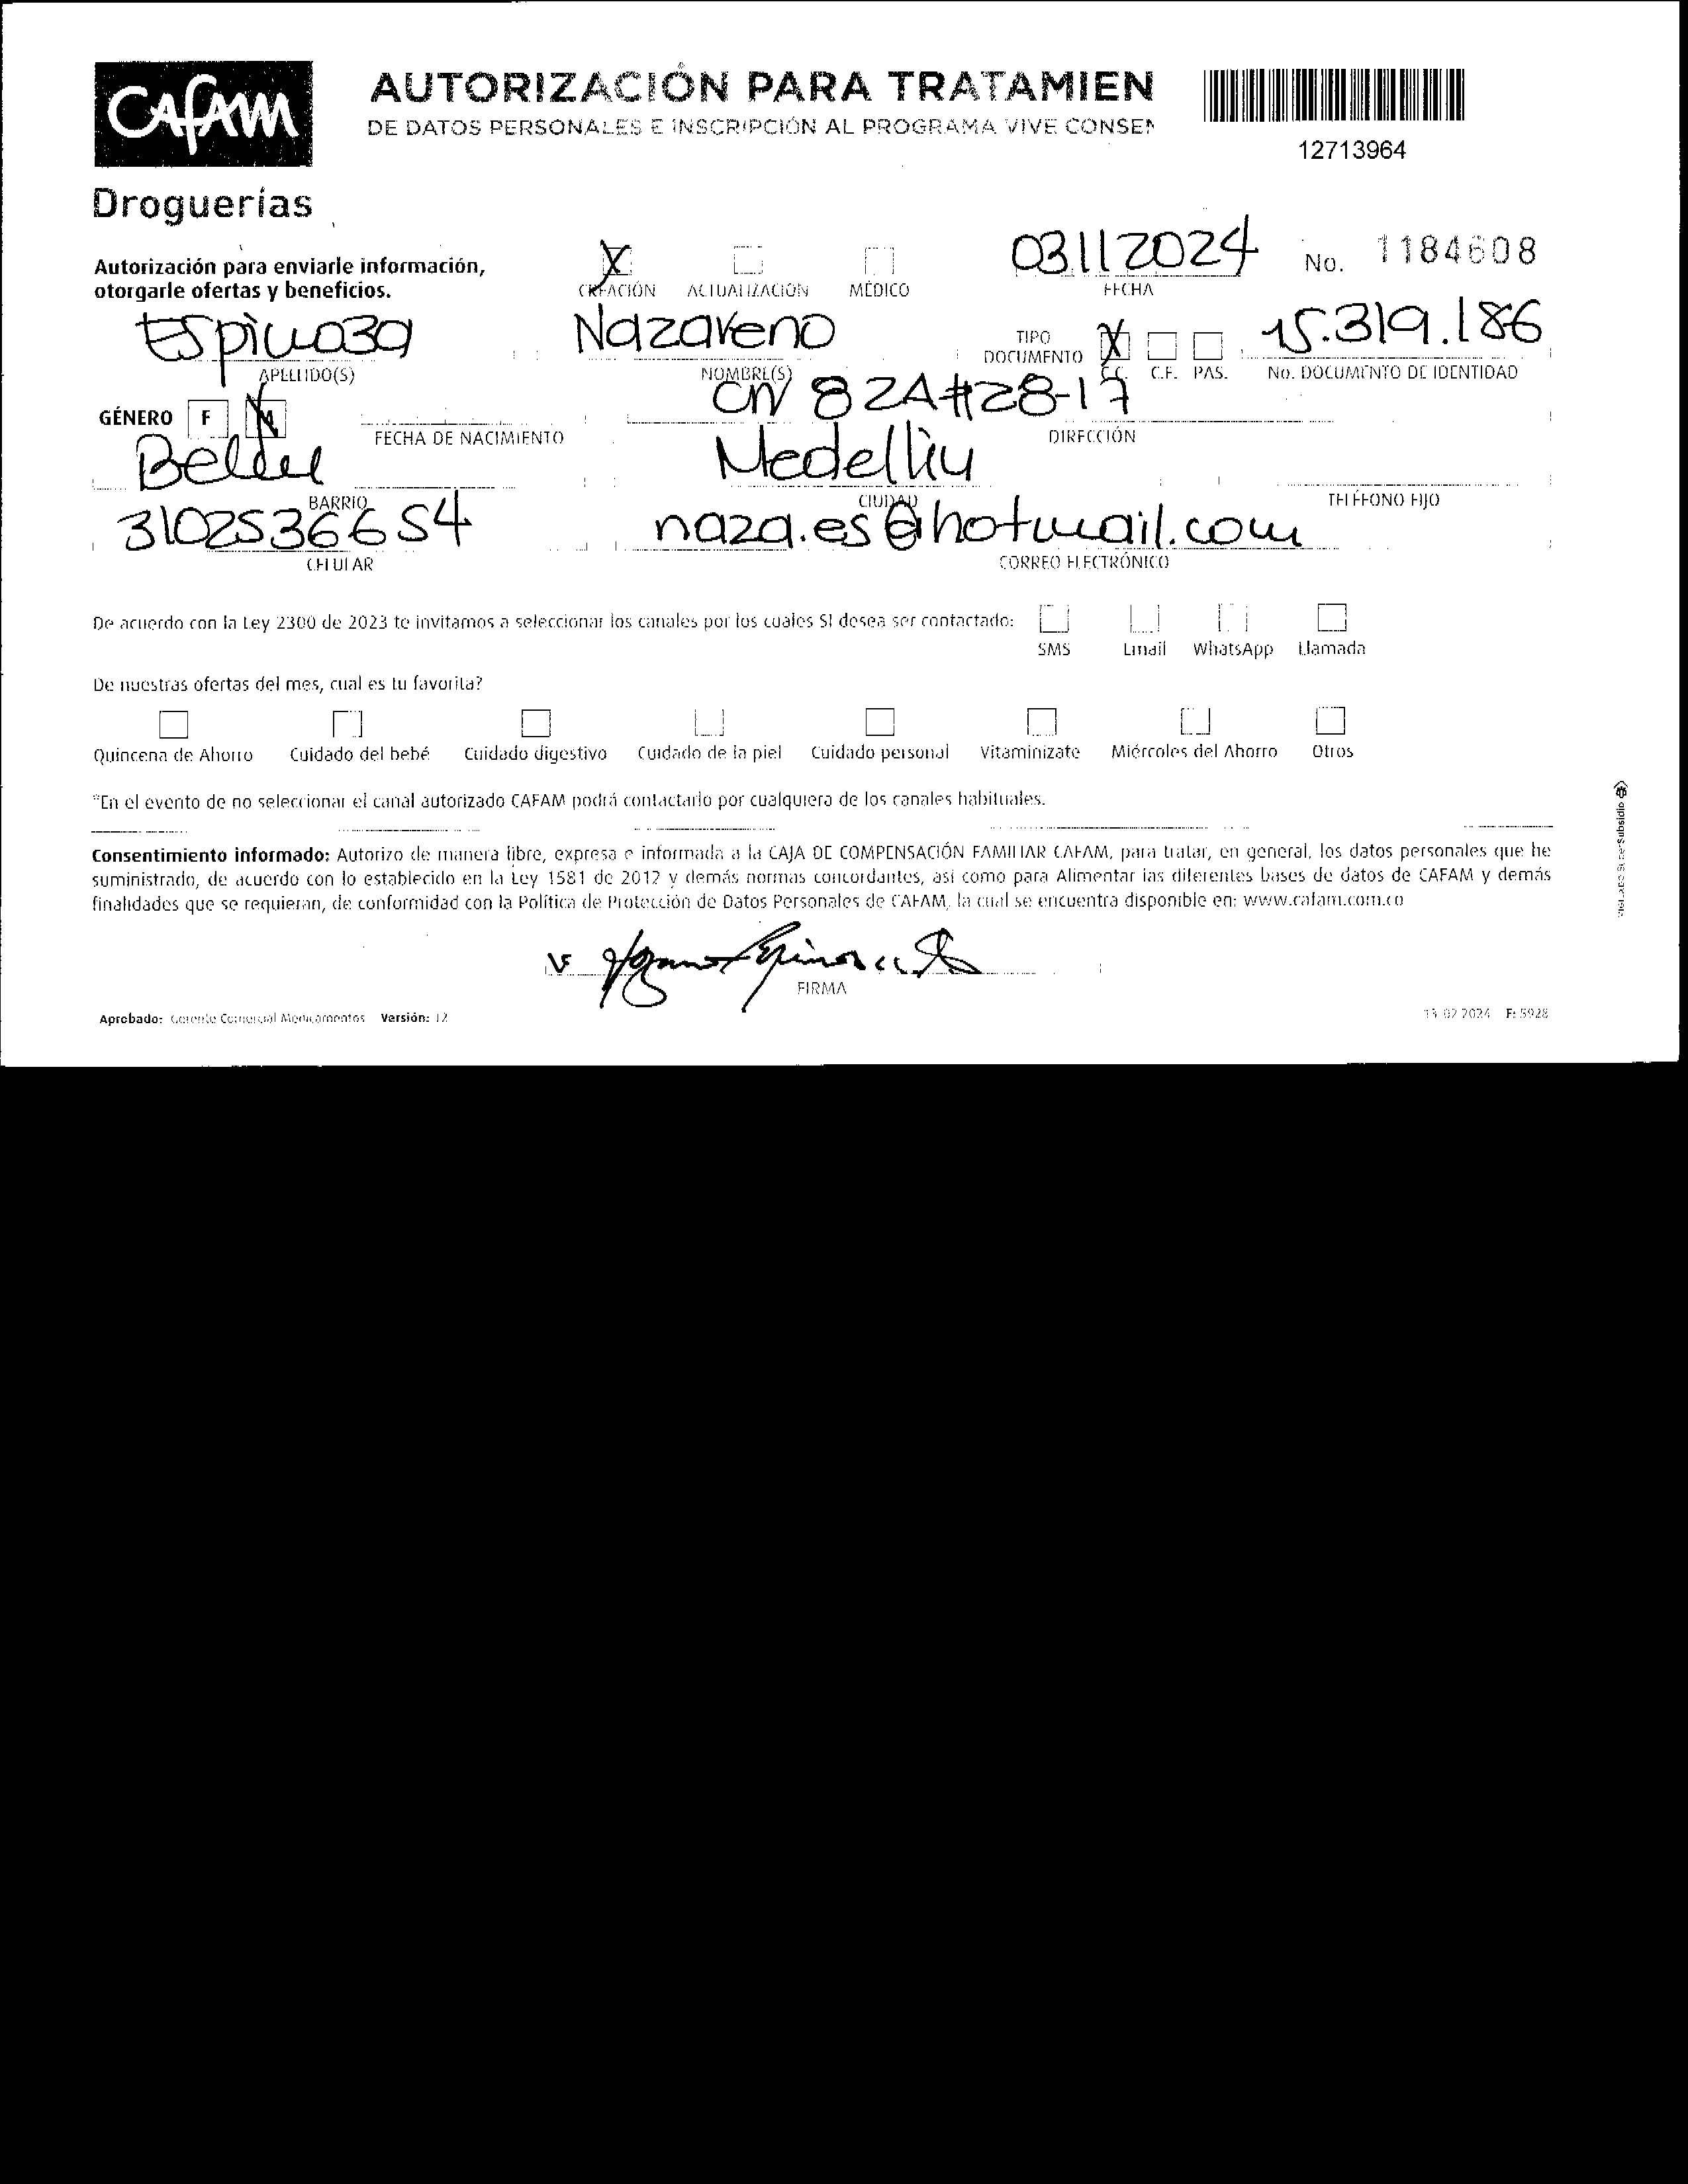 CAFAM
AUTORIZACIÓN PARA TRATAMIEN
DE DATOS PERSONALES E INSCRIPCIÓN AL PROGRAMA VIVE CONSEN
12713964
Droguerías
Autorización para enviarle información,
otorgarle ofertas y beneficios.
X
CREACIÓN ACTUALIZACIÓN MÉDICO
03 11 2024
FECHA
No. 1184608
Espinosa
APELLIDO(S)
Nazareno
NOMBRE(S)
TIPO
DOCUMENTO
X
C.C. C.E. PAS.
15.319.186
No. DOCUMENTO DE IDENTIDAD
GÉNERO F M
FECHA DE NACIMIENTO
82A#28-17
DIRECCIÓN
Belen
BARRIO
Medellin
CIUDAD
TELÉFONO FIJO
3102536654
CELULAR
naza.es@hotmail.com
CORREO ELECTRÓNICO
De acuerdo con la Ley 2300 de 2023 te invitamos a seleccionar los canales por los cuales SI desea ser contactado:
SMS Email WhatsApp Llamada
De nuestras ofertas del mes, cual es tu favorita?
Quincena de Ahorro Cuidado del bebé Cuidado digestivo Cuidado de la piel Cuidado personal Vitaminizate Miércoles del Ahorro Otros
*En el evento de no seleccionar el canal autorizado CAFAM podrá contactarlo por cualquiera de los canales habituales.
Consentimiento informado: Autorizo de manera libre, expresa e informada a la CAJA DE COMPENSACIÓN FAMILIAR CAFAM, para tratar, en general, los datos personales que he
suministrado, de acuerdo con lo establecido en la Ley 1581 de 2012 y demás normas concordantes, así como para Alimentar las diferentes bases de datos de CAFAM y demás
finalidades que se requieran, de conformidad con la Política de Protección de Datos Personales de CAFAM, la cual se encuentra disponible en: www.cafam.com.co
FIRMA
Aprobado: Gerente Comercial Medicamentos Versión: 12
13-02-2024 F: 5928
VIGILADO SuperSubsidio